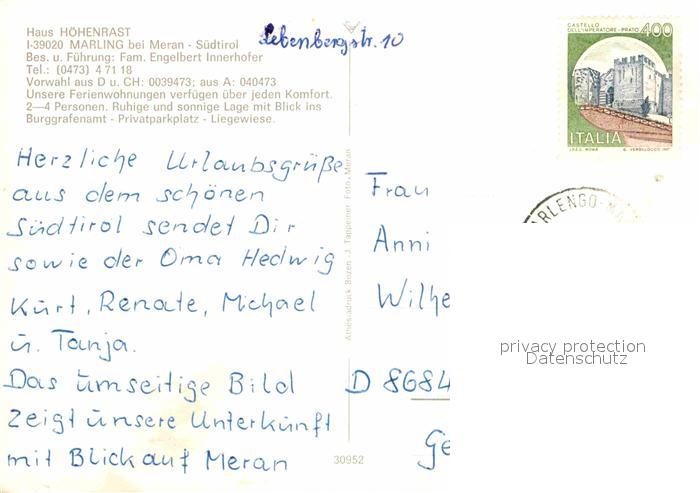 Haus HÖHENRAST
I-39020 MARLING bei Meran - Südtirol
Bes. u. Führung: Fam. Engelbert Innerhofer
Tel.: (0473) 4 71 18
Vorwahl aus D u. CH: 0039473; aus A: 040473
Unsere Ferienwohnungen verfügen über jeden Komfort.
2—4 Personen. Ruhige und sonnige Lage mit Blick ins
Burggrafenamt - Privatparkplatz - Liegewiese.
Lebenbergstr. 10
Herzliche Urlaubsgrüße
aus dem schönen
Südtirol sendet Dir
sowie der Oma Hedwig
Kurt, Renate, Michael
u. Tanja.
Das umseitige Bild
zeigt unsere Unterkunft
mit Blick auf Meran
Athesiadruck Bozen - J. Tappeiner Foto, Meran
30952
CASTELLO
DELL'IMPERATORE - PRATO
400
ITALIA
I.P.Z.S. ROMA
ARLENGO-MA
Frau
Anni
Wilhe
D 8684
Ge
privacy protection
Datenschutz